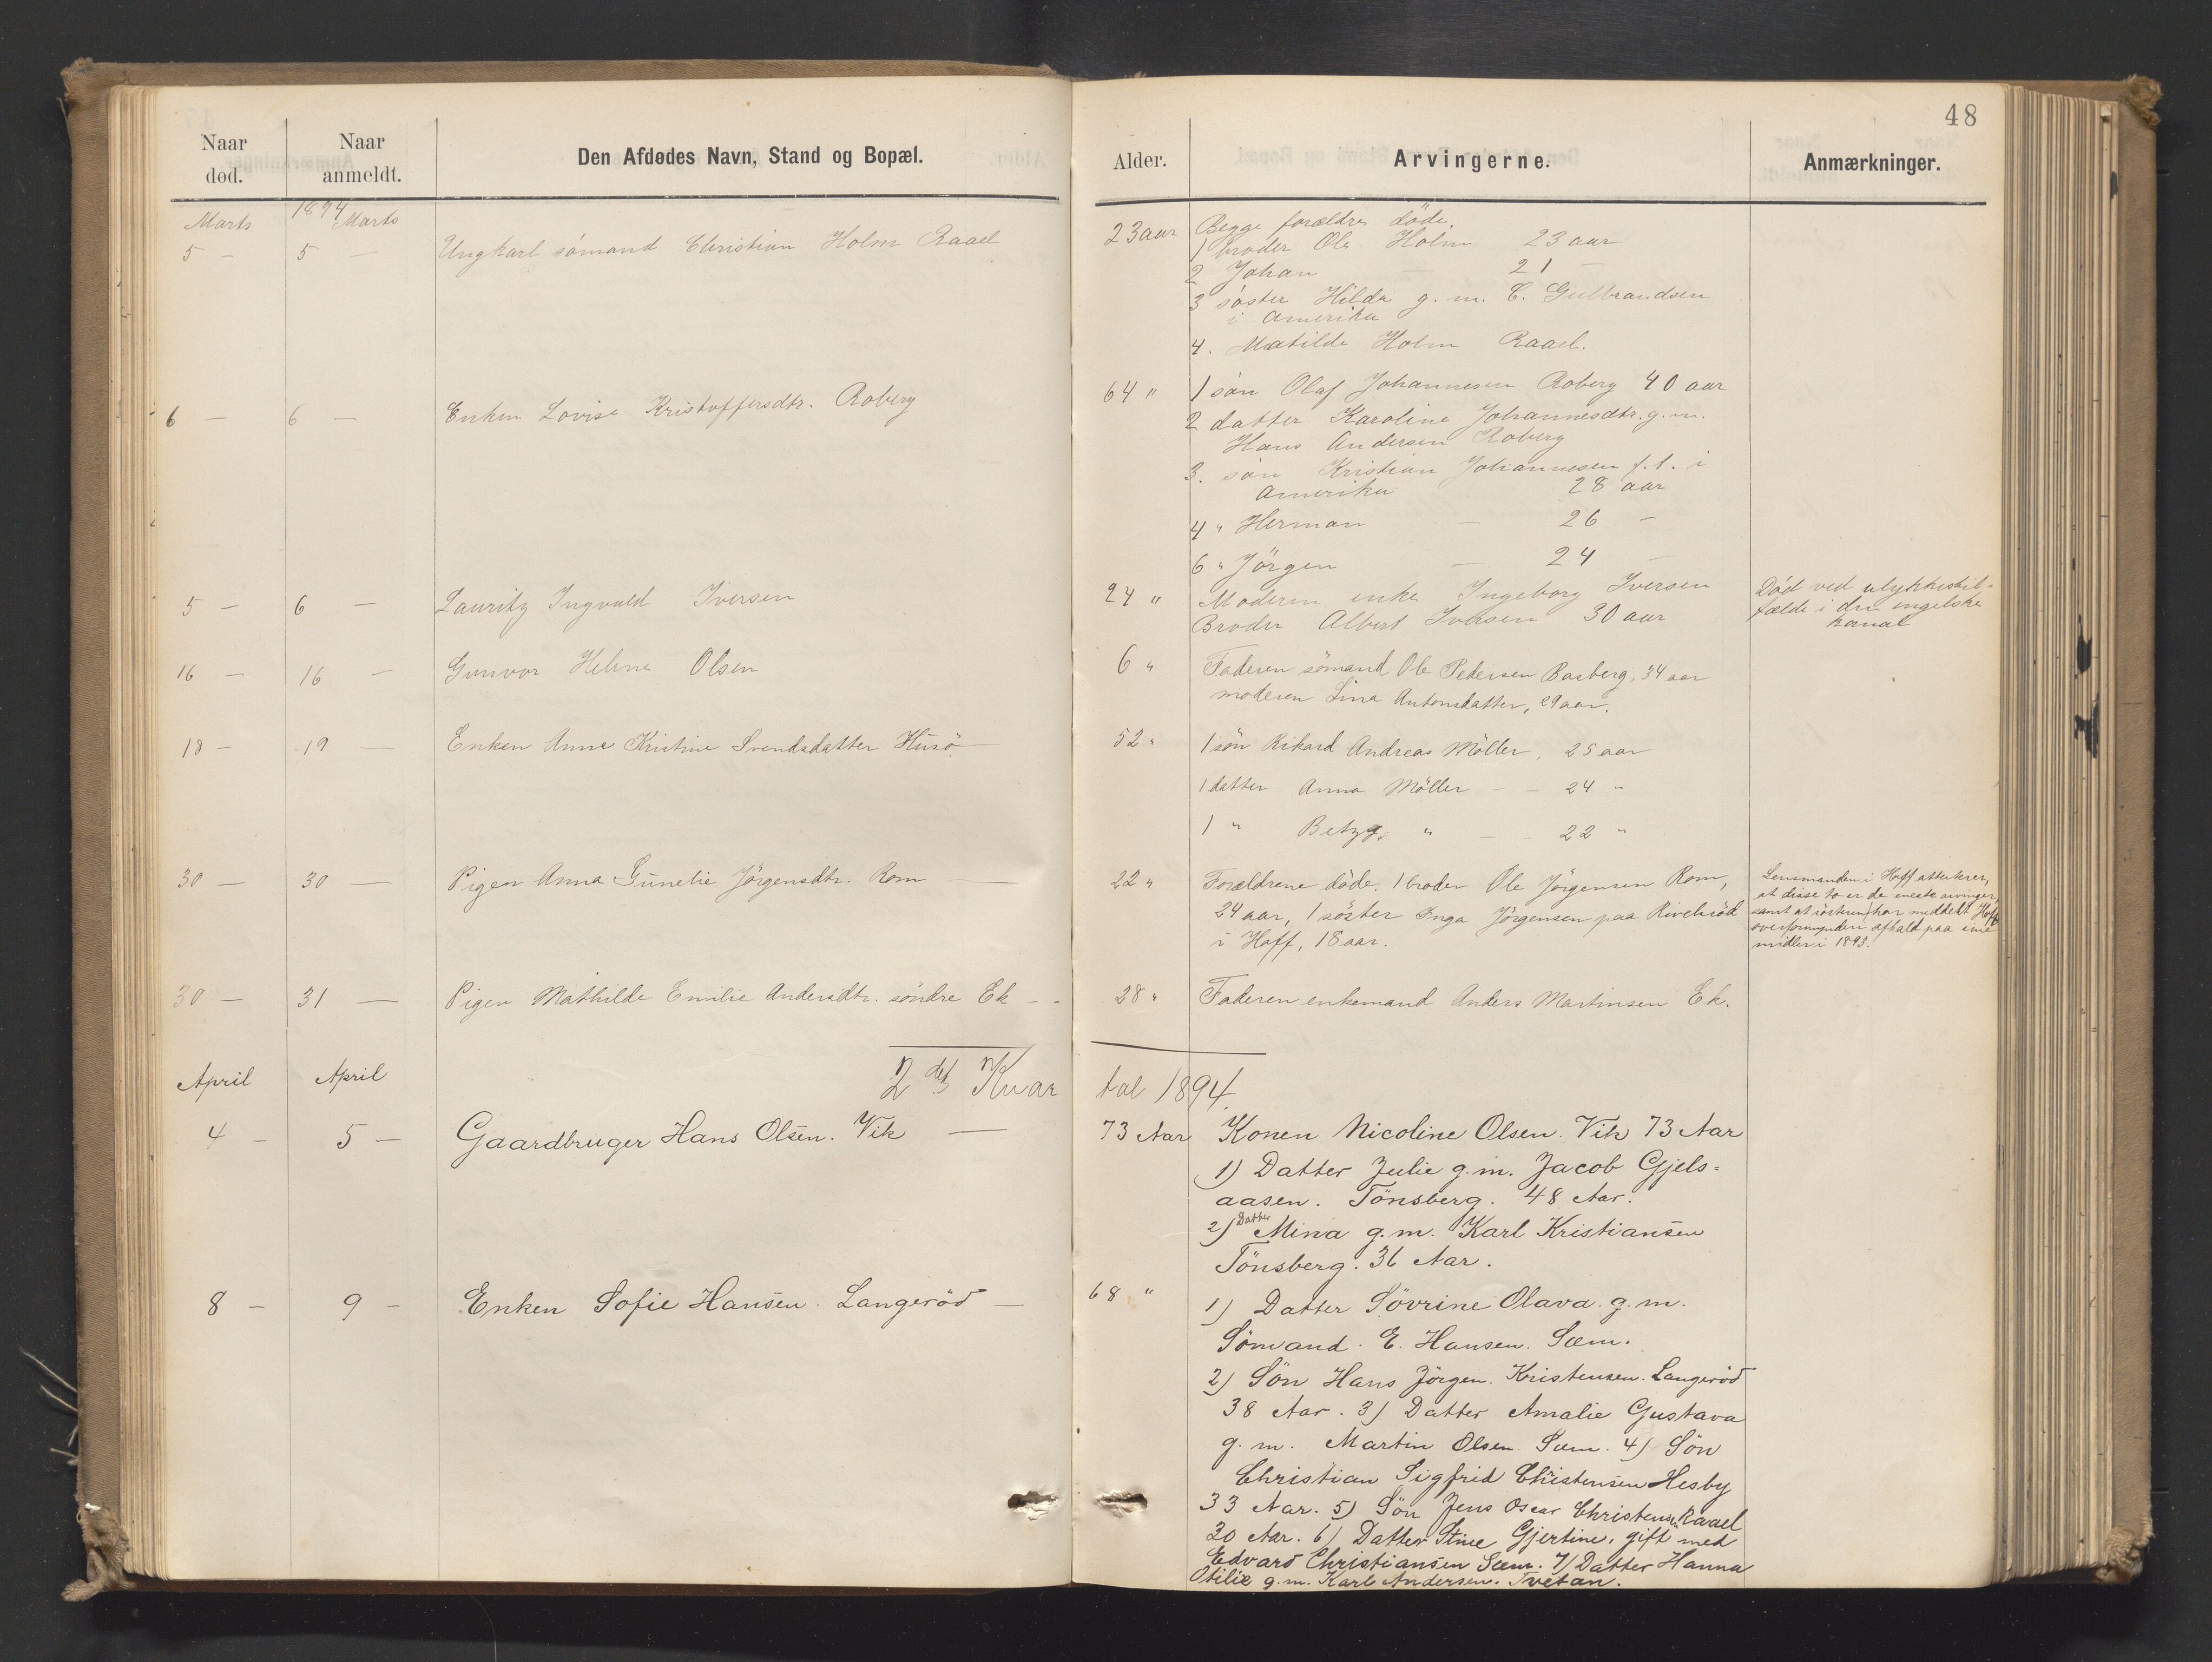 48
Naar død. Naar anmeldt. Den Afdødes Navn, Stand og Bopæl. Alder. Arvingerne. Anmærkninger.
1894
Marts Marts
5 — 5 — Ungkarl sömand Christian Holm Raael 23 aar Begge forældre döde
1 broder Ole Holm 23 aar
2 Johan — 21 —
3 söster Hilda g. m. C. Gulbrandsen
i Amerika
4. Matilde Holm Raael.
6 — 6 — Enken Lovise Kristoffersdtr. Roberg 64 " 1 sön Olaf Johannesen Roberg 40 aar
2 datter Karoline Johannesdtr. g. m.
Hans Andersen Roberg
3. sön Kristian Johannesen f. t. i
Amerika 28 aar
4 " Herman — 26 —
6 " Jörgen — 24 —
5 — 6 — Lauritz Ingvald Iversen 24 " Moderen enke Ingeborg Iversen
Broder Albert Iversen 30 aar
Död ved ulykkestil-
fælde i den engelske
kanal
16 — 16 — Gunvor Helene Olsen 6 " Faderen sömand Ole Pedersen Basberg, 34 aar
moderen Lina Antonsdatter, 29 aar.
18 — 19 — Enken Anne Kristine Svendsdatter Husö 52 " 1 sön Rikard Andreas Möller, 25 aar
1 datter Anna Möller — — 24 "
1 " Betzy, " — — 22 "
30 — 30 — Pigen Anna Gunelie Jörgensdtr. Rom — 22 " Forældrene döde. 1 broder Ole Jörgensen Rom,
24 aar, 1 söster Inga Jörgensen paa Rivelsröd
i Hoff, 18 aar.
Lensmanden i Hoff attesterer,
at disse to er de eneste arvinger,
samt at söstren har meddelt Hoffs
overformynderi afkald paa sine
midler i 1893.
30 — 31 — Pigen Mathilde Emilie Andersdtr. söndre Ek — - 28 " Faderen enkemand Anders Martinsen Ek.
2det Kvartal 1894.
April April
4 — 5 — Gaardbruger Hans Olsen. Vik — 73 Aar Konen Nicoline Olsen. Vik 73 Aar
1) Datter Julie g. m. Jacob Gjels-
aasen. Tönsberg. 48 Aar.
2) Datter Mina g. m. Karl Kristiansen
Tönsberg. 36 Aar.
8 — 9 — Enken Sofie Hansen. Langeröd — 68 " 1) Datter Sövrine Olava. g. m.
Sömand. E. Hansen. Sem.
2) Sön Hans Jörgen. Kristensen. Langeröd
38 Aar. 3) Datter Amalie Gustava
g. m. Martin Olsen. Sem. 4) Sön
Christian Sigfrid Christensen Hesby
33 Aar. 5) Sön Jens Oscar Christensen Raael
30 Aar. 6) Datter Stine Gjertine, gift med
Edvard Christiansen Sem. 7) Datter Hanna
Otilie g. m. Karl Andersen. Tvetan.